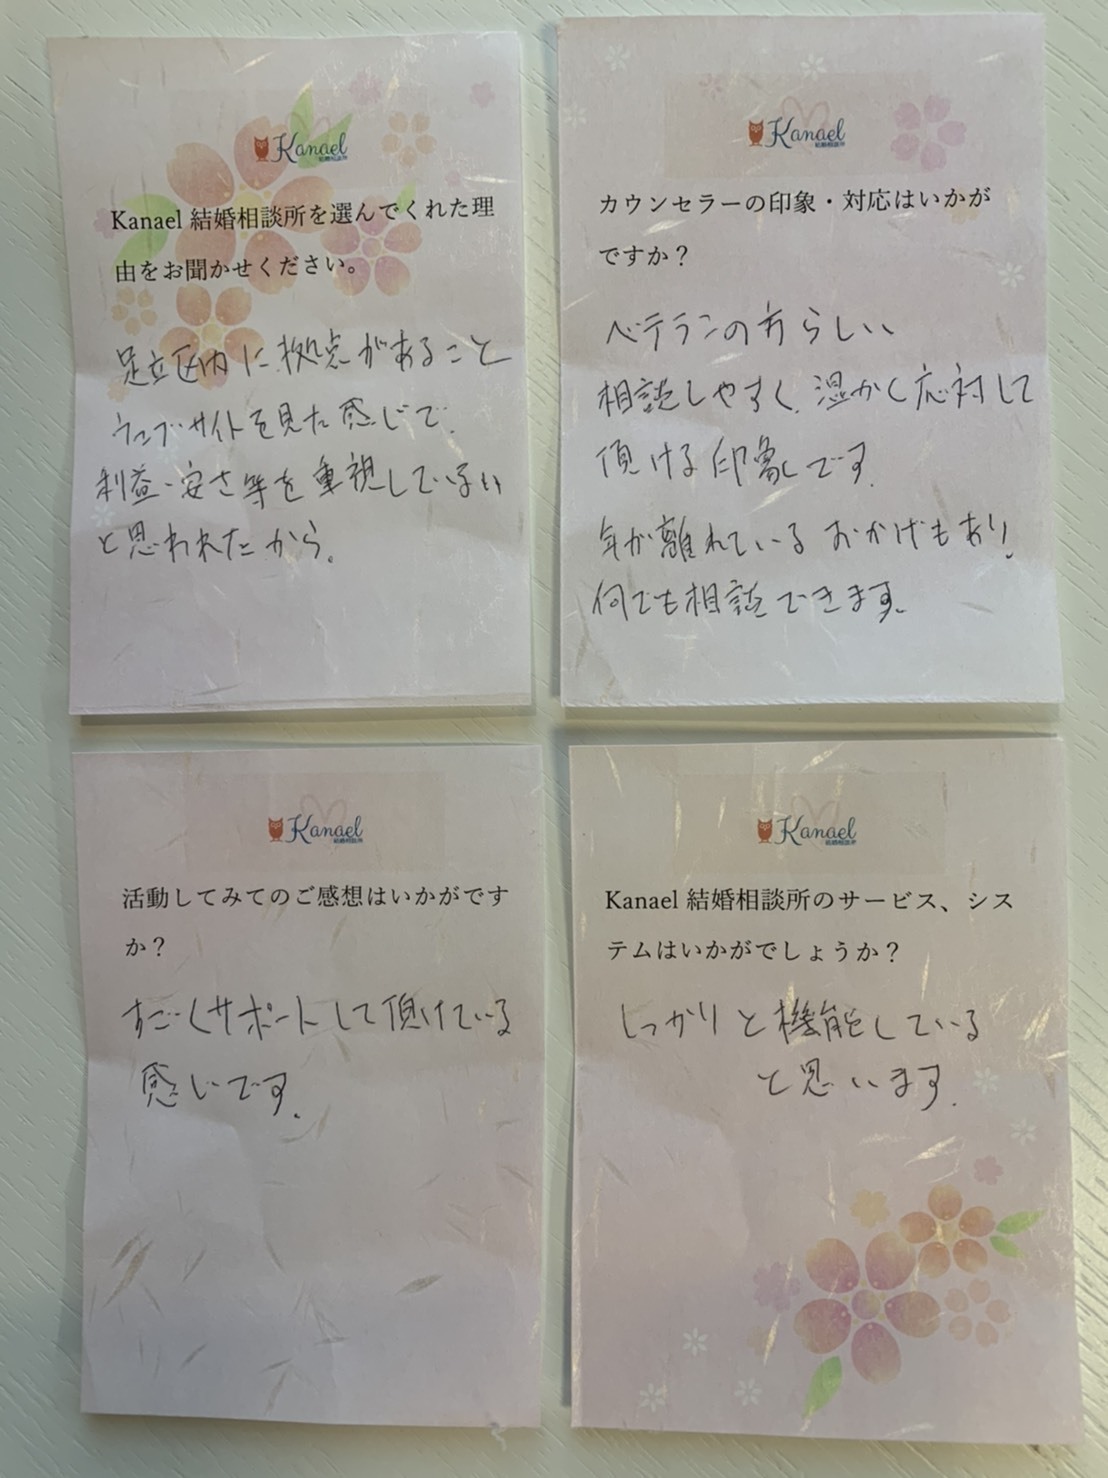 Kanael
結婚相談所
Kanael 結婚相談所を選んでくれた理
由をお聞かせください。
足立区内に拠点があること
ウェブサイトを見た感じで、
利益・安さ等を重視していない
と思われたから。
Kanael
結婚相談所
カウンセラーの印象・対応はいかが
ですか？
ベテランの方らしい
相談しやすく、温かく応対して
頂ける印象です。
年が離れているおかげもあり、
何でも相談できます。
Kanael
結婚相談所
活動してみてのご感想はいかがです
か？
すごくサポートして頂けている
感じです。
Kanael
結婚相談所
Kanael 結婚相談所のサービス、シス
テムはいかがでしょうか？
しっかりと機能している
と思います。